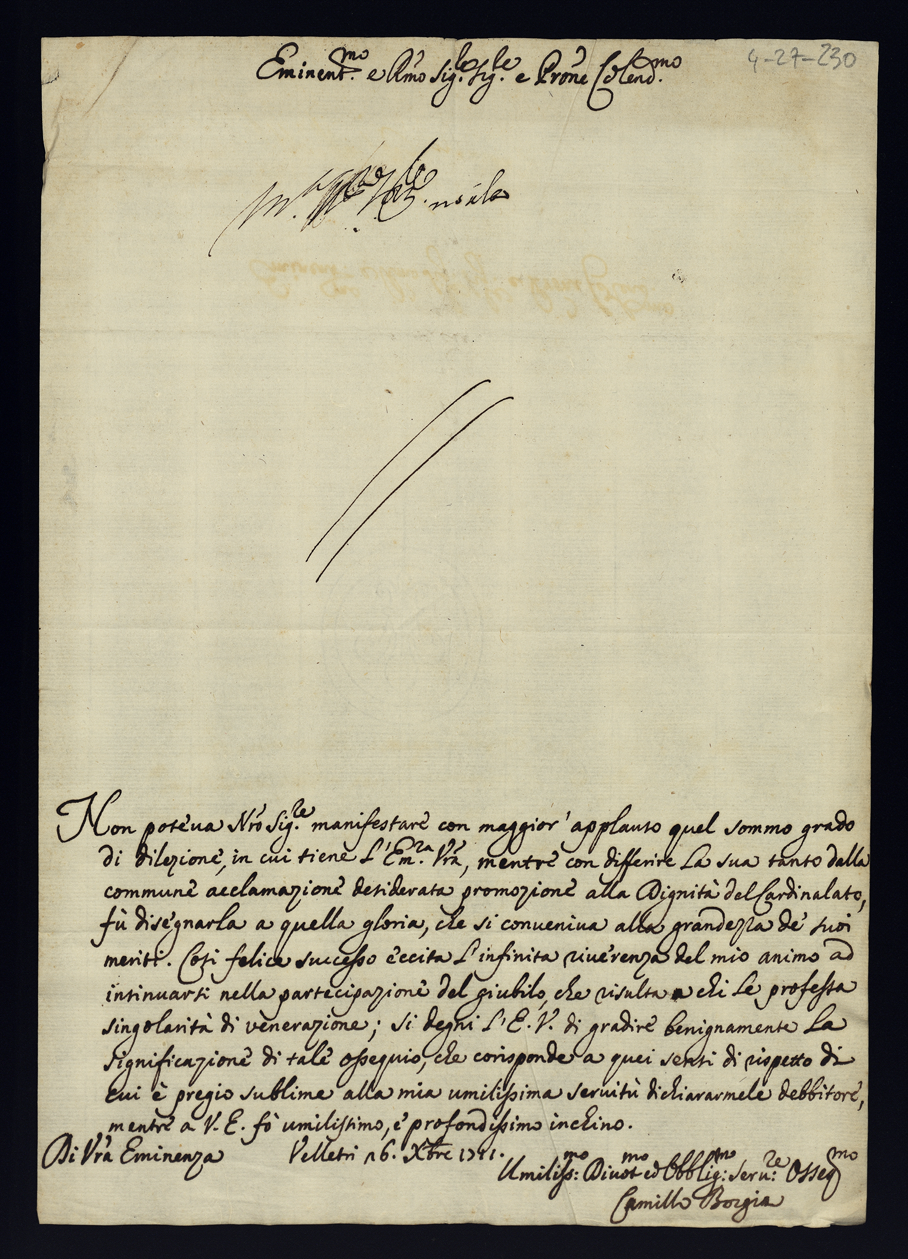 4-27-230
Eminent.mo e Rmo Sig.re Sig.re e Prone Colend.mo
Non poteva Nro Sig.re manifestare con maggior' applauso quel sommo grado
di dilezione, in cui tiene L'Em.za Vra, mentre con differire La sua tanto dalla
commune acclamazione desiderata promozione alla Dignità del Cardinalato,
fù disegnarla a quella gloria, che si conveniva alla grandezza de' suoi
meriti. Cosi felice successo eccita L'infinita riverenza del mio animo ad
insinuarsi nella partecipazione del giubilo, che risulta a chi Le professa
singolarità di venerazione; si degni L'E. V. di gradire benignamente La
significazione di tale ossequio, che corisponde a quei sensi di rispetto di
cui è pregio sublime alla mia umilissima servitù dichiararmele debbitore,
mentre a V. E. fò umilissimo, e profondissimo inchino.
Di Vra Eminenza Velletri 16. Xbre 1711.
Umiliss:mo Divot:mo ed Obblig:mo Serv:re Osseq:mo
Camillo Borgia